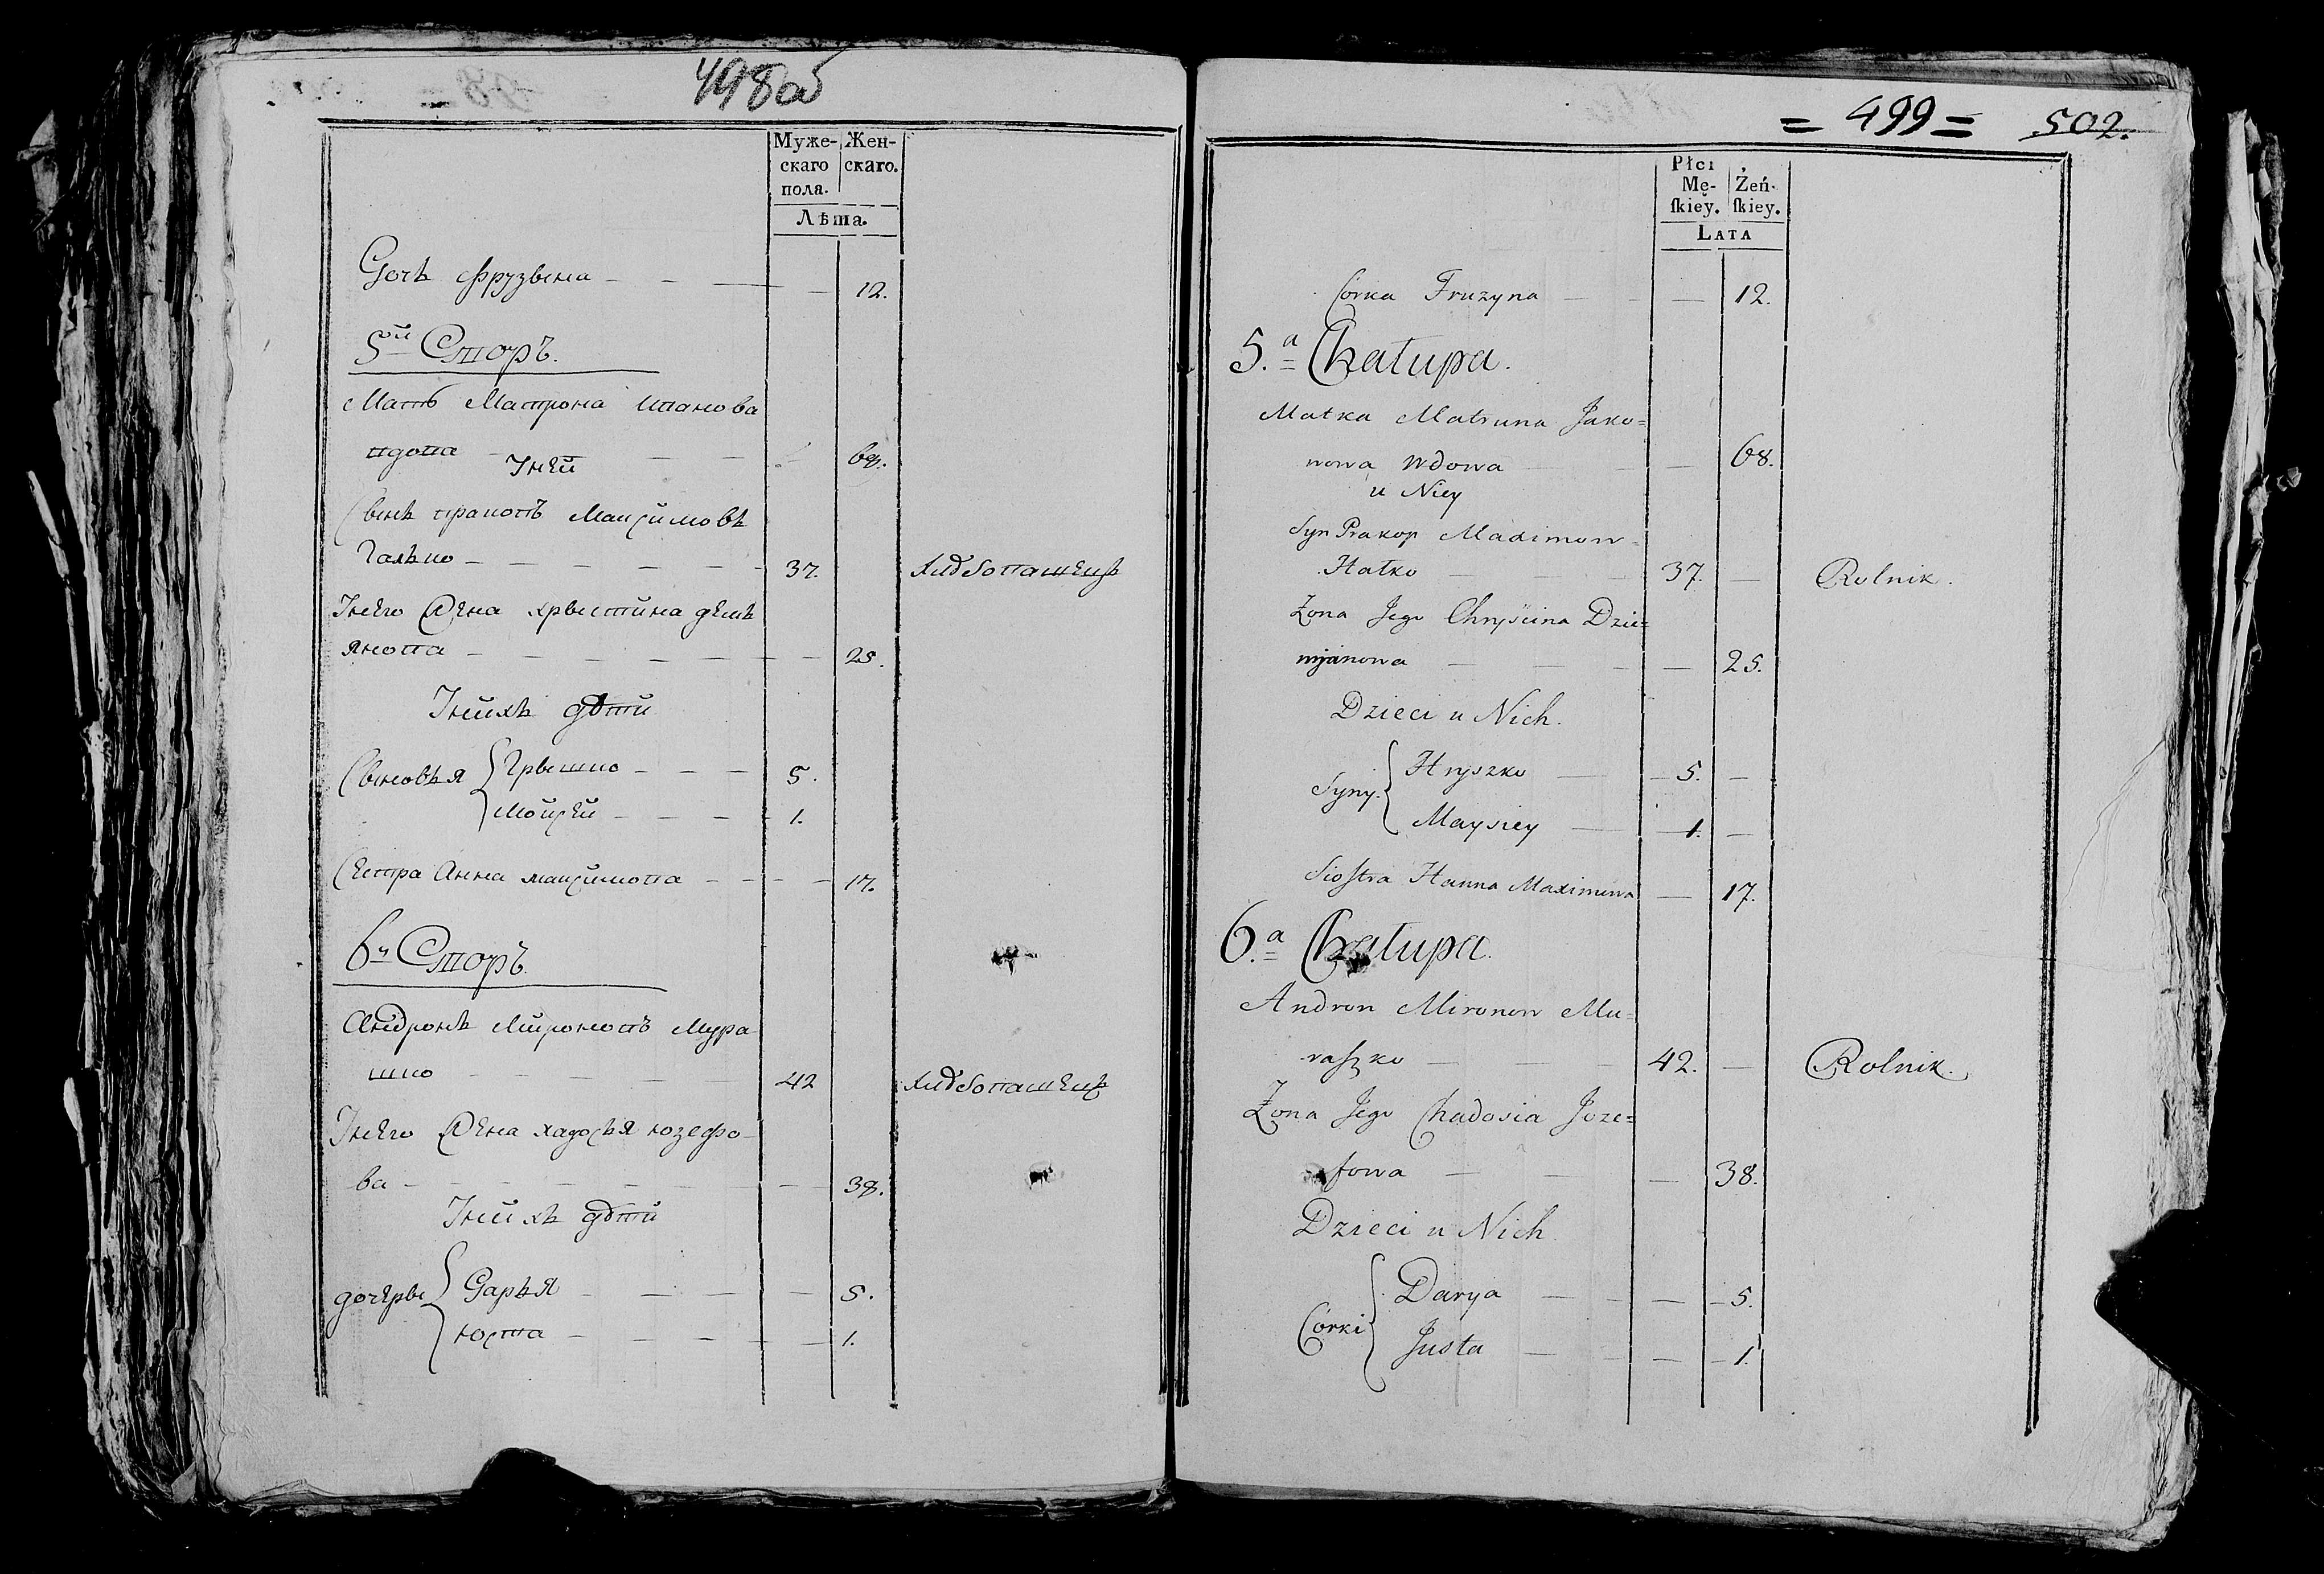 498об
Муже- Жен-
скаго скаго.
пола.
Лѣта.
Дочь Фрузына 12.
5ой Дворъ.
Мать Матрона Иванова
вдова 68.
У ней
Сынъ Праковъ Максимовъ
Галько 37. хлебопашецъ
У него Жена Христина Демь
янова 25.
У нихъ дѣти
Сыновья Грышко 5.
Мойсей 1.
Сестра Анна Максимова 17.
6й Дворъ.
Андронъ Мироновъ Мура
шко 42 хлебопашецъ
У него Жена Хадосья Юзефо-
ва 38.
У нихъ дѣти
дочеры Дарья 5.
Юста 1.
= 499 = 502.
Płci
Mę- Żeń-
ſkiey. ſkiey.
LATA
Córka Fruzyna 12.
5.a Chałupa.
Matka Matruna Jako=
nowa Wdowa 68.
u Niey
Syn Prakop Maximow=
Hałko 37. Rolnik.
Żona Jego Chryścina Dzie=
mjanowa 25.
Dzieci u Nich.
Syny. Hryszko 5.
Maysiey 1.
Siostra Hanna Maximowa 17.
6.a Chałupa.
Andron Mironow Mu=
raszko 42. Rolnik.
Żona Jego Chadosia Joze=
fowa 38.
Dzieci u Nich
Córki Darya 5.
Justa 1.